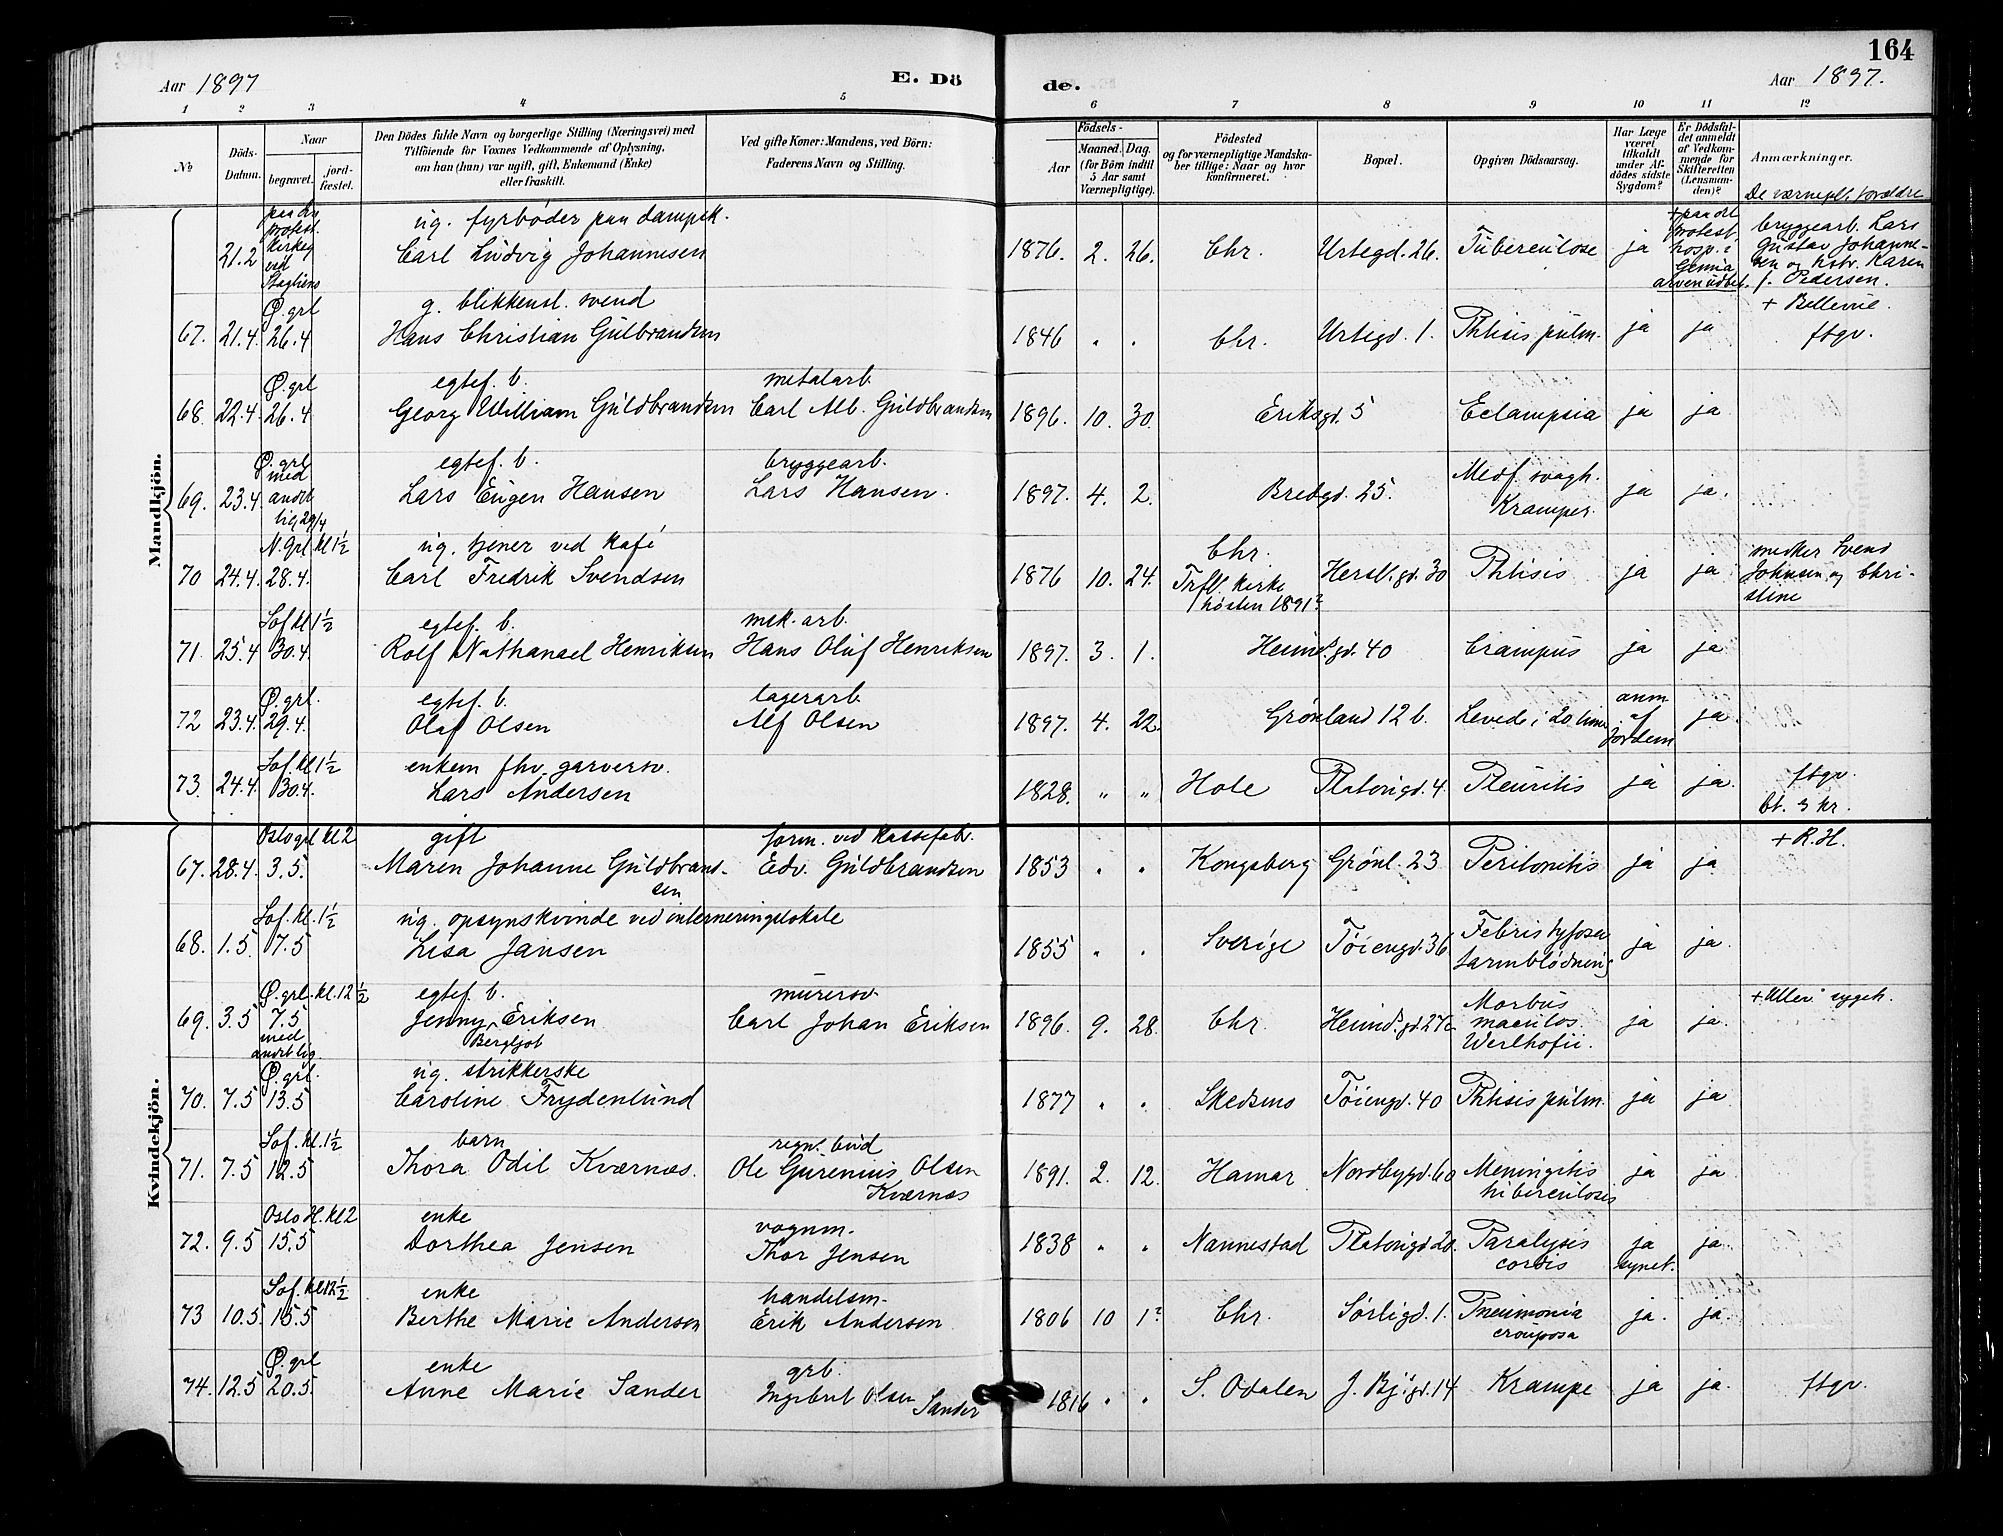 164
Aar 1897
E. Dö
de.
Aar 1897.
1 2 3 4 5 6 7 8 9 10 11 12
No
Döds-Datum.
Naar
begravet.
jord-fæstet.
Den Dödes fulde Navn og borgerlige Stilling (Næringsvei) med
Tilföiende for Voxnes Vedkommende af Oplysning,
om han (hun) var ugift, gift, Enkemand (Enke)
eller fraskilt.
Ved gifte Koner: Mandens, ved Börn:
Faderens Navn og Stilling.
Födsels-
Aar
Maaned. Dag.
(for Börn indtil
5 Aar samt
Værnepligtige).
Födested
og for værnepligtige Mandska-
ber tillige: Naar og hvor
konfirmeret.
Bopæl.
Opgiven Dödsaarsag.
Har Læge
været
tilkaldt
under Af-
dödes sidste
Sygdom?
Er Dödsfal-
det anmeldt
af Vedkom-
mende for
Skifteretten
(Lensman-
den)?
Anmærkninger.
De værnepl. forældre
Mandkjön.
paa d.
protest.
kirkeg
ved
21.2
ug. fyrbøder paa dampsk.
Carl Ludvig Johannesen
1876 2. 26. Chr. Urtegd. 26. Tuberculose ja
+ paa det
protest
hosp. i
Genua
bryggearb. Lars
Gustav Johanne-
sen og hstr. Karen
f. Pedersen.
Ø. grl g. blikkensl. svend
67. 21.4. 26.4 Hans Christian Gulbrandsen 1846 " " Chr. Urtegd. 1. Phtisis pulm. ja ja
+ Bellevue
ftgv.
Ø. grl egtef. b. metalarb.
68. 22.4. 26.4 Georg William Guldbrandsen Carl Alb. Guldbrandsen 1896. 10. 30. Eriksgd. 5 Eclampsia ja ja
Ø. grl
med
andet
lig 29/4
egtef. b. bryggearb.
69. 23.4. Lars Eugen Hansen Lars Hansen. 1897. 4. 2. Bredgd. 25. Medf. svagh.
Kramper. ja ja.
N. Grl. kl 1½ ug. tjener ved kafé
70 24.4. 28.4. Carl Fredrik Svendsen 1876 10. 24. Chr.
Trfl. kirke
høsten 1891? Hersl. gd. 30 Phtisis ja ja
snedker Svend
Johnsen og Chri-
stine
Sof kl 1½ egtef. b. mek. arb.
71. 25.4 30.4. Rolf Nathanael Henriksen Hans Oluf Henriksen 1897. 3. 1. Heimd. gd. 40 Crampus ja ja
Ø. grl. egtef. b. lagerarb
72 23.4. 29.4. Olaf Olsen Alf Olsen 1897. 4. 22. Grønland 12 b. Levede i 20 timer
anm
af
Jordem
ja
Sof. kl 1½ enkem fhv. garversv.
73. 24.4. 30.4. Lars Andersen 1828. " " Hole Platousgd. 4. Pleuritis ja ja
ftgv.
bt. 3 kr.
Kvindekjön.
Oslo grl kl 2 gift form. ved kassefabr.
67. 28.4. 3.5. Maren Johanne Guldbrand-
sen Edv. Guldbrandsen 1853 " " Kongsberg Grønl. 23 Peritonitis ja ja + R.H.
Sof. kl. 1½ ug. opsynskvinde ved interneringslokale
68. 1.5. 7.5 Lisa Jansen 1855 " " Sverige Tøiengd. 36 Febris tyfosa
tarmblødning ja ja
Ø. grl. kl. 12½ egtef. b. murersv.
69. 3.5 7.5
med
andet lig. Jenny Eriksen
Bergljot Carl Johan Eriksen 1896. 9. 28. Chr. Heimd. gd. 27c Morbus
maculos.
Werlhofii. ja ja + Ullev. sygeh.
Ø. grl. ug. strikkerske
70. 7.5 13.5 Caroline Frydenlund 1877 " " Skedsmo Tøiengd. 40 Phtisis pulm. ja ja
Sof. kl. 1½ barn regn. bud
71. 7.5 12.5 Thora Odil Kværnæs. Ole Gurenius Olsen
Kværnæs 1891. 2. 12. Hamar Nordbygd. 60 Meningitis
tuberculosis ja ja
Oslo H. kl 2 enke vognm.
72. 9.5 15.5 Dorthea Jensen Thor Jensen 1838 " " Nannestad Platousgd 20. Paralysis
cordis ja
synet. ja
Sof. kl 12½ enke handelsm.
73 10.5. 15.5 Berthe Marie Andersen Erik Andersen 1806 10 1? Chr. Sørligd. 1. Pneumonia
crouposa ja. ja
Ø. grl enke grb.
74. 12.5 20.5. Anne Marie Sander Ingebret Olsen
Sander 1816 " " S. Odalen J. Bj. gd. 14 Krampe ja ja. ftgv.